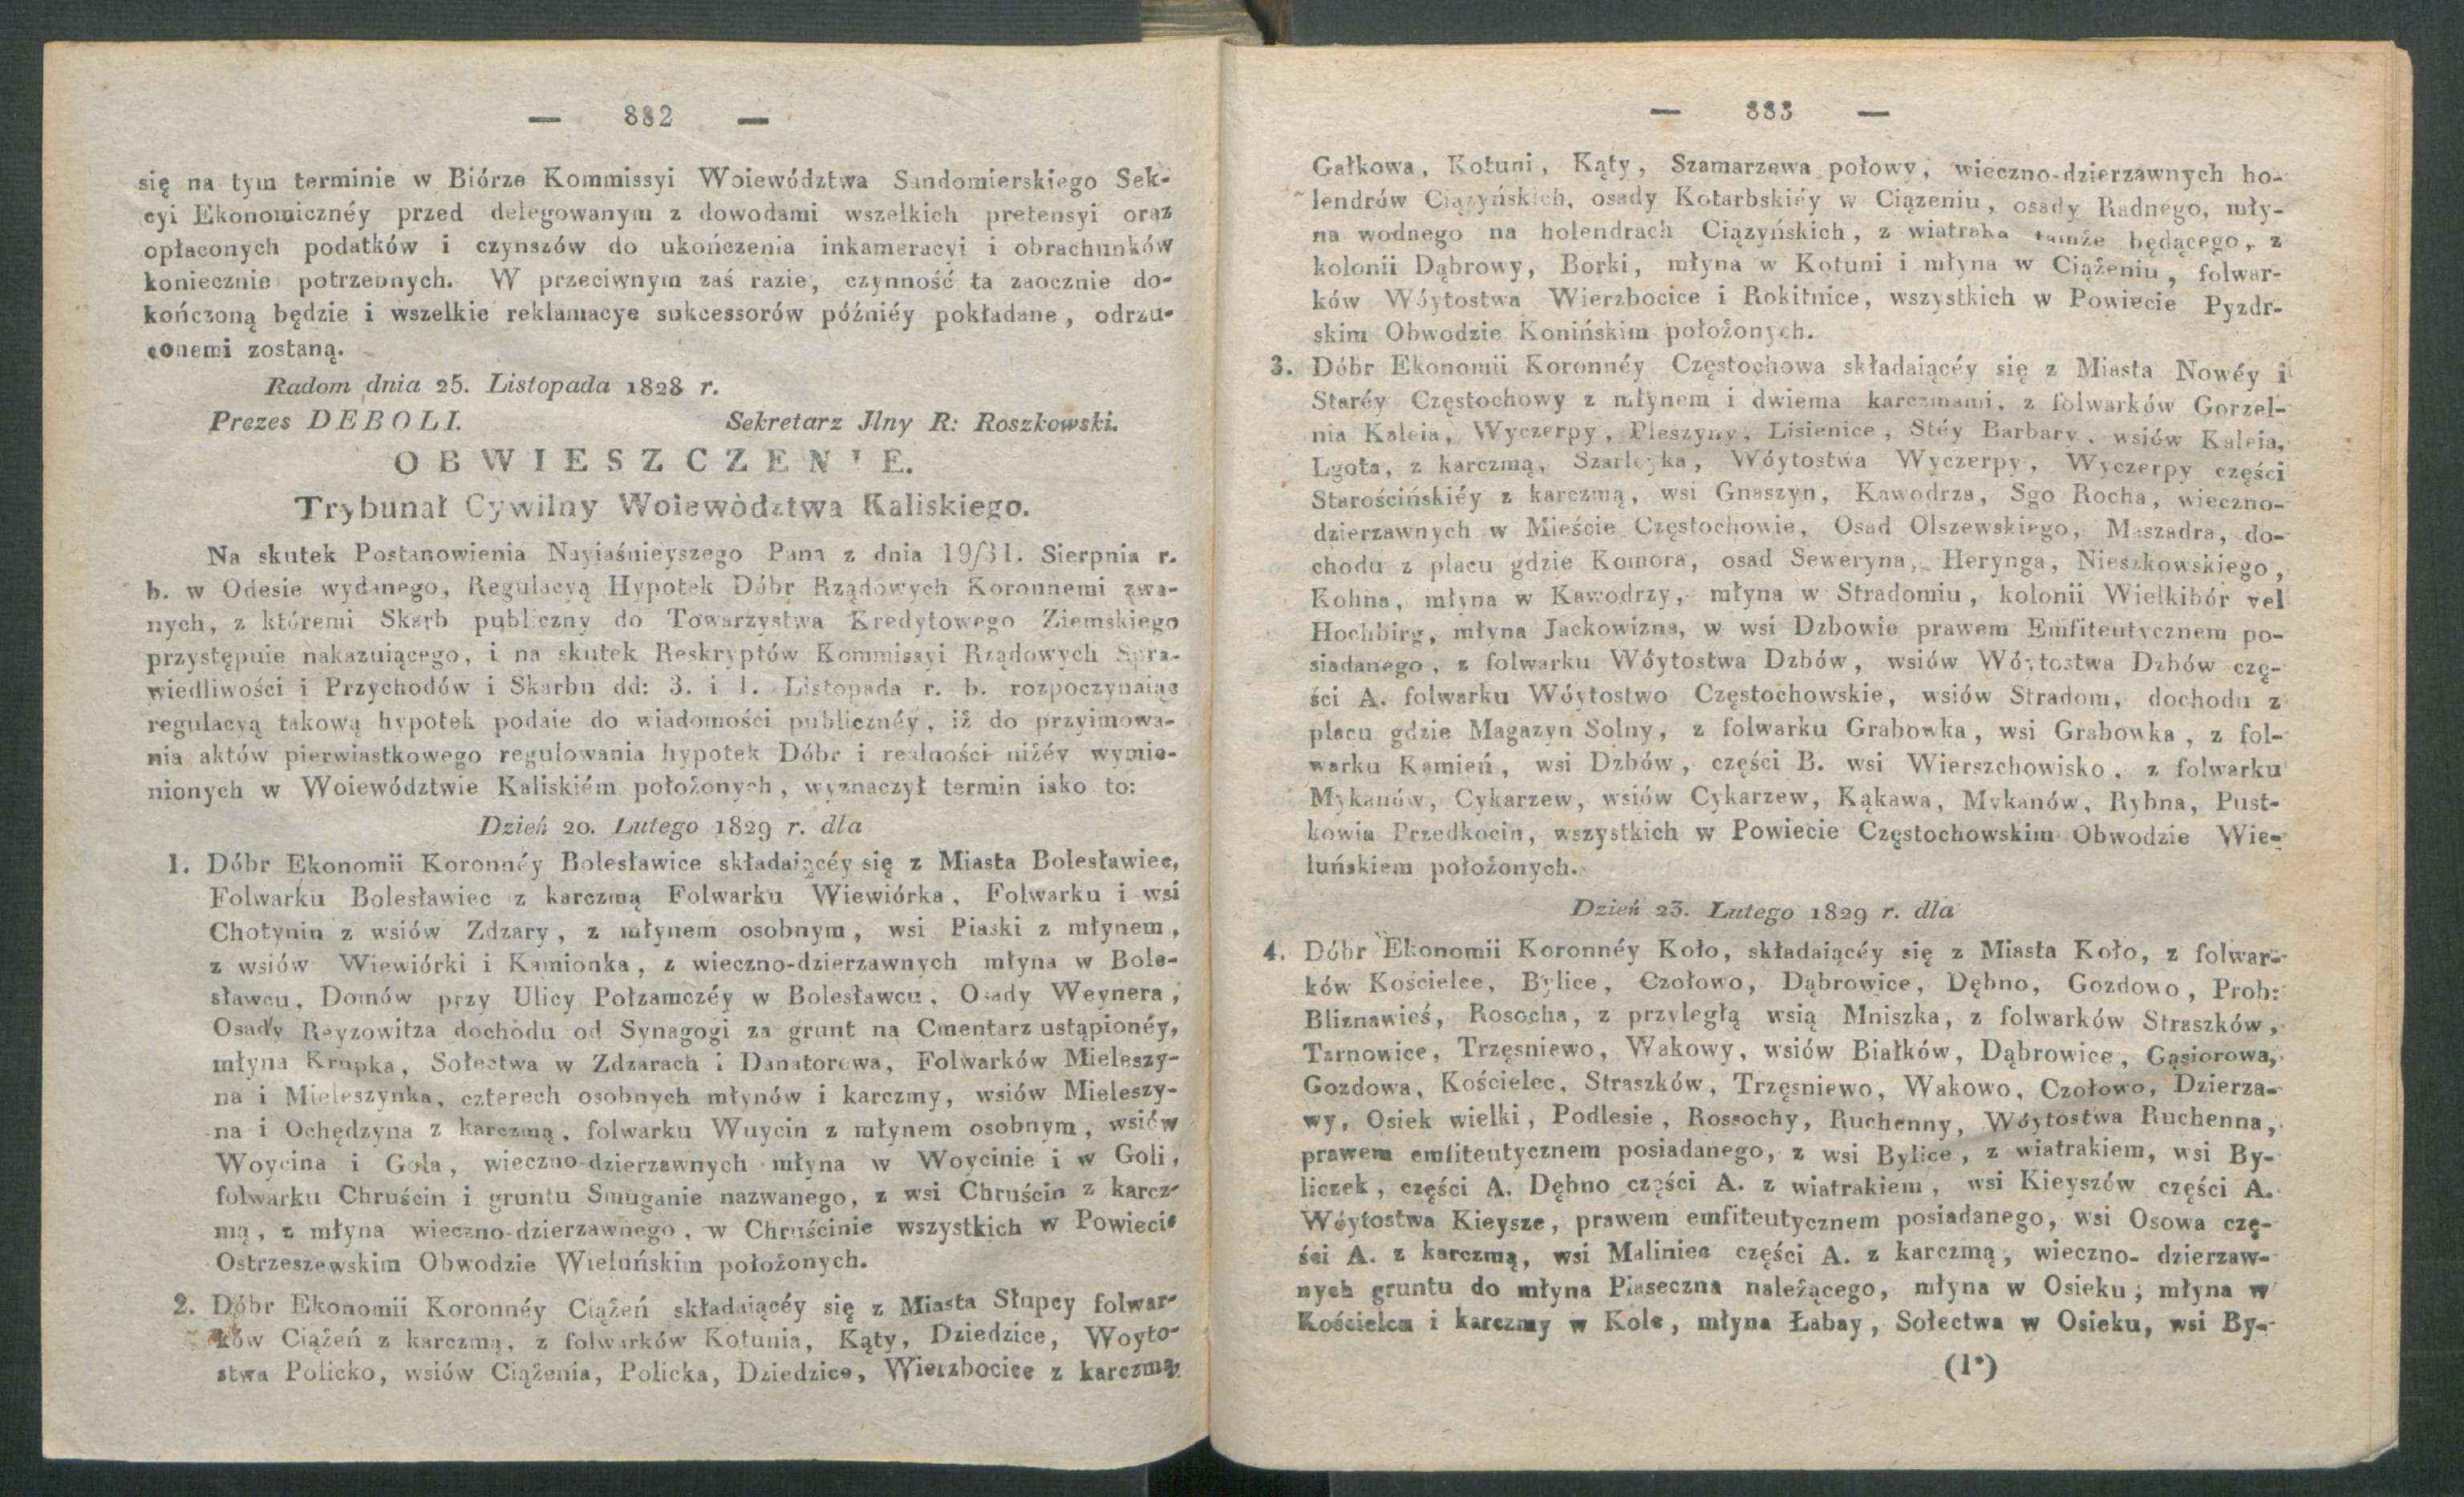 — 882 —
się na tym terminie w Biórze Kommissyi Woiewództwa Sandomierskiego Sek-
cyi Ekonomicznéy przed delegowanym z dowodami wszelkich pretensyi oraz
opłaconych podatków i czynszów do ukończenia inkameracyi i obrachunków
koniecznie potrzebnych. W przeciwnym zaś razie, czynność ta zaocznie do-
kończoną będzie i wszelkie reklamacye sukcessorów późniéy pokładane, odrzu-
conemi zostaną.
Radom dnia 25. Listopada 1828 r.
Prezes DEBOLI. Sekretarz Jlny R: Roszkowski.
OBWIESZCZENIE.
Trybunał Cywilny Woiewództwa Kaliskiego.
Na skutek Postanowienia Nayiaśnieyszego Pana z dnia 19/31. Sierpnia r.
b. w Odesie wydanego, Regulacyą Hypotek Dóbr Rządowych Koronnemi zwa-
nych, z któremi Skarb publiczny do Towarzystwa Kredytowego Ziemskiego
przystępuie nakazuiącego, i na skutek Reskryptów Kommissyi Rządowych Spra-
wiedliwości i Przychodów i Skarbu dd: 3. i 1. Listopada r. b. rozpoczynaiąc
regulacyą takową hypotek podaie do wiadomości publicznéy, iż do przyimowa-
nia aktów pierwiastkowego regulowania hypotek Dóbr i realności niżéy wymie-
nionych w Woiewództwie Kaliskiém położonych, wyznaczył termin iako to:
Dzień 20. Lutego 1829 r. dla
1. Dóbr Ekonomii Koronnéy Bolesławice składaiącéy się z Miasta Bolesławiec,
Folwarku Bolesławiec z karczmą Folwarku Wiewiórka, Folwarku i wsi
Chotynin z wsiów Zdzary, z młynem osobnym, wsi Piaski z młynem,
z wsiów Wiewiórki i Kamionka, z wieczno-dzierzawnych młyna w Bole-
sławcu, Domów przy Ulicy Połzamczéy w Bolesławcu, Osady Weynera,
Osady Reyzowitza dochodu od Synagogi za grunt na Cmentarz ustąpionéy,
młyna Krupka, Sołectwa w Zdzarach i Danatorowa, Folwarków Mieleszy-
na i Mieleszynka, czterech osobnych młynów i karczmy, wsiów Mieleszy-
na i Ochędzyna z karczmą, folwarku Wuycin z młynem osobnym, wsiów
Woycina i Gola, wieczno-dzierzawnych młyna w Woycinie i w Goli,
folwarku Chruścin i gruntu Smuganie nazwanego, z wsi Chruścin z karcz-
mą, z młyna wieczno-dzierzawnego, w Chruścinie wszystkich w Powiecie
Ostrzeszewskim Obwodzie Wieluńskim położonych.
2. Dóbr Ekonomii Koronnéy Ciążeń składaiącéy się z Miasta Słupcy folwar-
ków Ciążeń z karczmą, z folwarków Kotunia, Kąty, Dziedzice, Woyto-
stwa Policko, wsiów Ciążenia, Policka, Dziedzice, Wierzbocice z karczmą,
— 883 —
Gałkowa, Kotuni, Kąty, Szamarzewa połowy, wieczno-dzierzawnych ho-
lendrów Ciązyńskich, osady Kotarbskiéy w Ciązeniu, osady Radnego, mły-
na wodnego na holendrach Ciązyńskich, z wiatraka tamże będącego, z
kolonii Dąbrowy, Borki, młyna w Kotuni i młyna w Ciążeniu, folwar-
ków Wóytostwa Wierzbocice i Rokitnice, wszystkich w Powiecie Pyzdr-
skim Obwodzie Konińskim położonych.
3. Dóbr Ekonomii Koronnéy Częstochowa składaiącéy się z Miasta Nowéy i
Staréy Częstochowy z młynem i dwiema karczmami, z folwarków Gorzel-
nia Kaleia, Wyczerpy, Pleszyny, Lisienice, Stéy Barbary, wsiów Kaleia,
Lgota, z karczmą, Szarleyka, Wóytostwa Wyczerpy, Wyczerpy części
Starościńskiéy z karczmą, wsi Gnaszyn, Kawodrza, Sgo Rocha, wieczno-
dzierzawnych w Mieście Częstochowie, Osad Olszewskiego, Maszadra, do-
chodu z placu gdzie Komora, osad Seweryna, Herynga, Nieszkowskiego,
Kohna, młyna w Kawodrzy, młyna w Stradomiu, kolonii Wielkibór vel
Hochbirg, młyna Jackowizna, w wsi Dzbowie prawem Emfiteutycznem po-
siadanego, z folwarku Wóytostwa Dzbów, wsiów Wóytostwa Dzbów czę-
ści A. folwarku Wóytostwo Częstochowskie, wsiów Stradom, dochodu z
placu gdzie Magazyn Solny, z folwarku Grabowka, wsi Grabowka, z fol-
warku Kamień, wsi Dzbów, części B. wsi Wierszchowisko, z folwarku
Mykanów, Cykarzew, wsiów Cykarzew, Kąkawa, Mykanów, Rybna, Pust-
kowia Przedkocin, wszystkich w Powiecie Częstochowskim Obwodzie Wie-
luńskiem położonych.
Dzień 23. Lutego 1829 r. dla
4. Dóbr Ekonomii Koronnéy Koło, składaiącéy się z Miasta Koło, z folwar-
ków Kościelec, Bylice, Czołowo, Dąbrowice, Dębno, Gozdowo, Prob:
Bliznawieś, Rososcha, z przyległą wsią Mniszka, z folwarków Straszków,
Tarnowice, Trzęsniewo, Wakowy, wsiów Białków, Dąbrowice, Gąsiorowa,
Gozdowa, Kościelec, Straszków, Trzęsniewo, Wakowo, Czołowo, Dzierza-
wy, Osiek wielki, Podlesie, Rossochy, Ruchenny, Wóytostwa Ruchenna,
prawem emfiteutycznem posiadanego, z wsi Bylice, z wiatrakiem, wsi By-
liczek, części A. Dębno części A. z wiatrakiem, wsi Kieyszów części A.
Wóytostwa Kieysze, prawem emfiteutycznem posiadanego, wsi Osowa czę-
ści A. z karczmą, wsi Maliniec części A. z karczmą, wieczno- dzierzaw-
nych gruntu do młyna Piaseczna należącego, młyna w Osieku; młyna w
Kościelcu i karczmy w Kole, młyna Łabay, Sołectwa w Osieku, wsi By-
(1*)